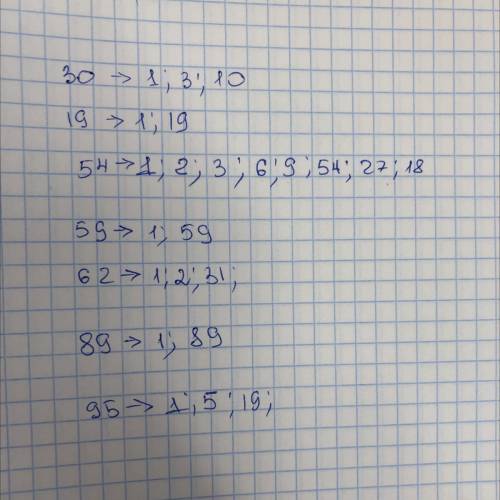 30 → 1; 3; 10
19 → 1; 19
54 → 1; 2; 3; 6; 9; 54; 27; 18
59 → 1; 59
62 → 1; 2; 31;
89 → 1; 89
95 → 1; 5; 19;